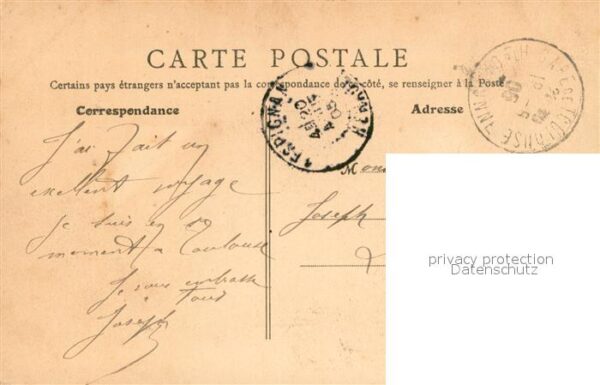 CARTE POSTALE
Certains pays étrangers n'acceptant pas la correspondance de ce côté, se renseigner à la Poste
Correspondance
Adresse
J'ai fait un
exellent voyage
Je suis en ce
moment a Toulouse
Je vous embrasse
a tous
Joseph
Mon
Joseph
PERPIGNAN
privacy protection
Datenschutz